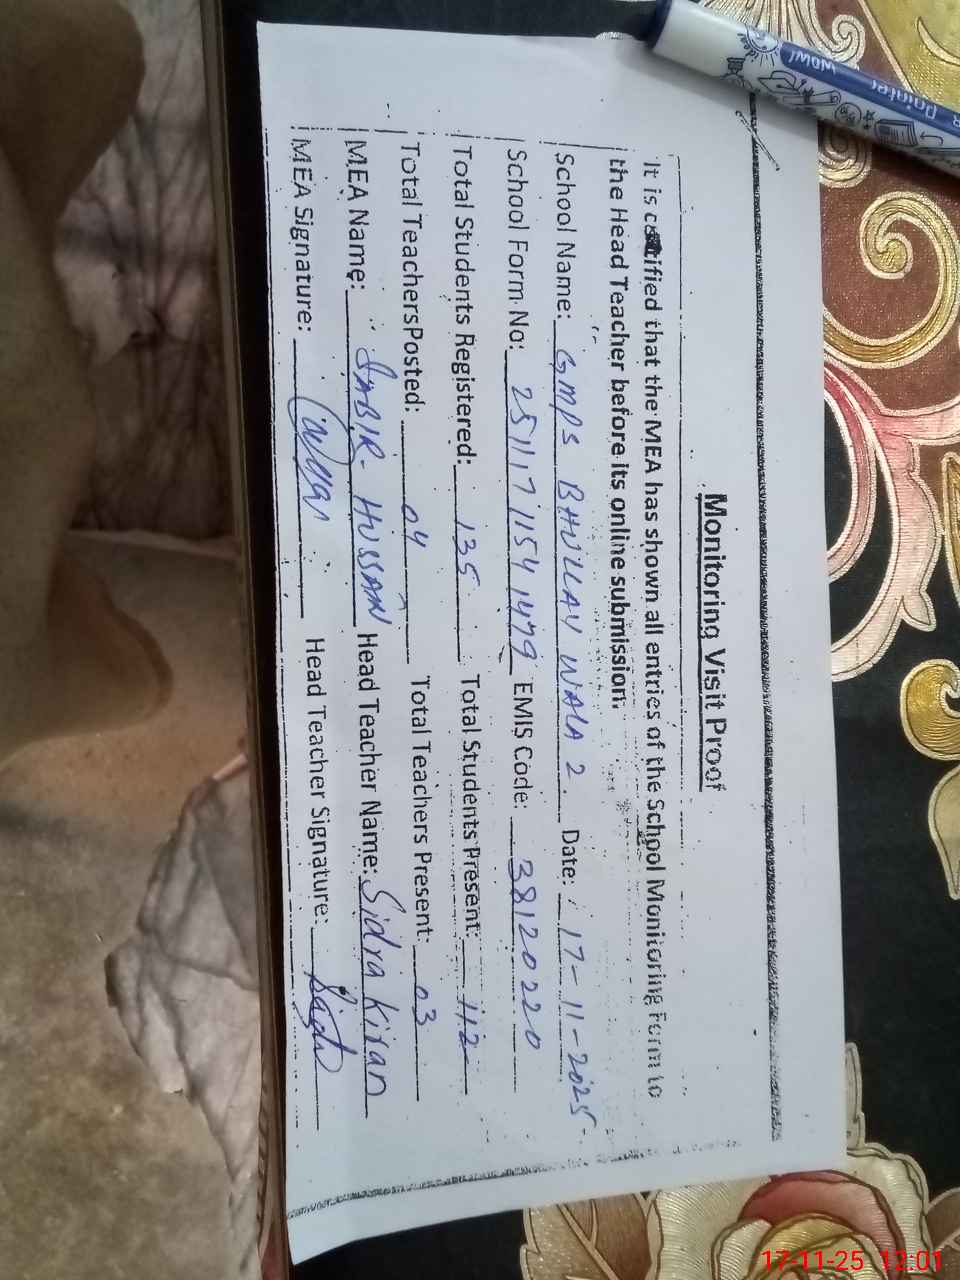 Monitoring Visit Proof
It is certified that the MEA has shown all entries of the School Monitoring Form to
the Head Teacher before its online submission.
School Name: GMPS BHULLAY WALA 2. Date: 17-11-2025
School Form No: 251117 1154 1479 EMIS Code: 38120220
Total Students Registered: 135 Total Students Present: 112
Total TeachersPosted: 04 Total Teachers Present: 03
MEA Name: SABIR HUSSAN Head Teacher Name: Sidra Kiran
MEA Signature: Head Teacher Signature:
Pointer
WOW!
idea!
17-11-25 12:01